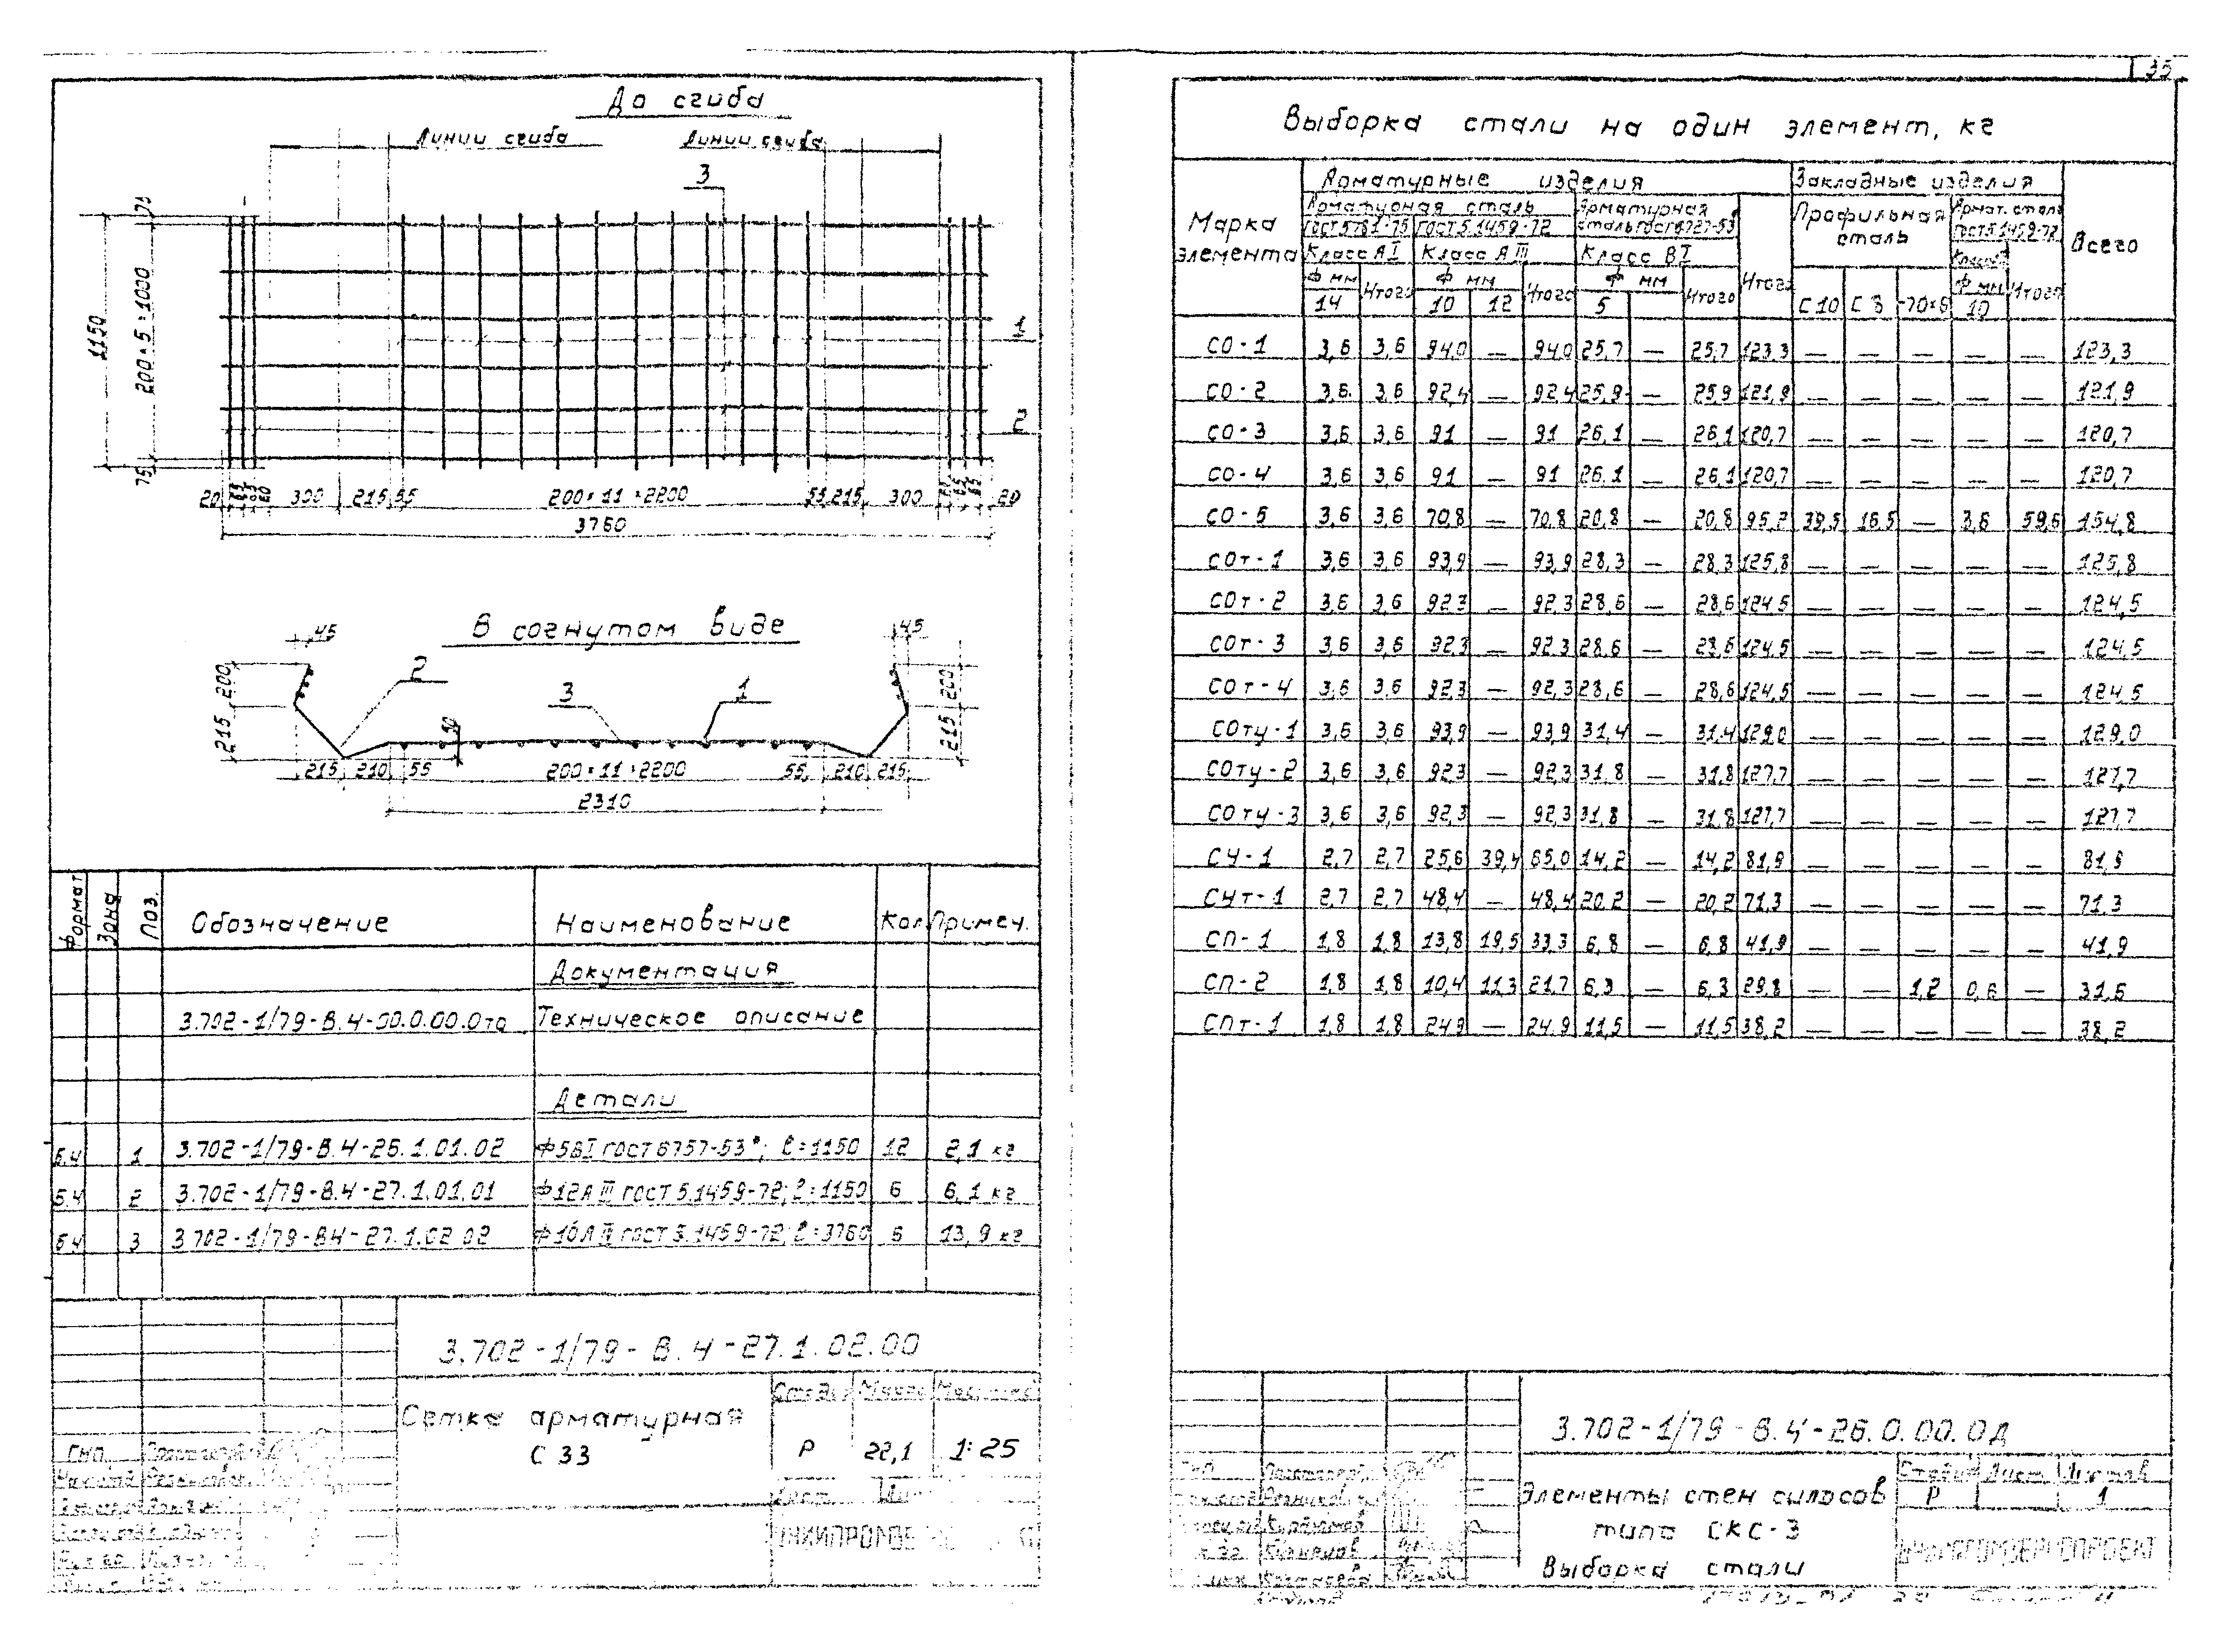 35
До сгиба
Линии сгиба Линии сгиба
3
75
1150
200×5=1000
1
2
75
20 60 300 215 55 200×11=2200 55 215 300 20
3760
В согнутом виде
45 45
200 2 3 1 200
215 10 215
215 210 55 200×11=2200 55 210 215
2310
Формат Зона Поз. Обозначение Наименование Кол Примеч.
Документация
3.702-1/79-В.4-00.0.00.0то Техническое описание
Детали
Б.4 1 3.702-1/79-В.4-26.1.01.02 Ф5ВI ГОСТ 6757-53*; ℓ=1150 12 2,1 кг
Б.4 2 3.702-1/79-В.4-27.1.01.01 Ф12АIII ГОСТ 5.1459-72; ℓ=1150 6 6,1 кг
Б4 3 3.702-1/79-В4-27.1.02.02 Ф10АIII ГОСТ 5.1459-72; ℓ=3760 6 13,9 кг
3.702-1/79-В.4-27.1.02.00
Сетка арматурная
С 33
Р 22,1 1:25
ГИП
Лист
Выборка стали на один элемент, кг
Марка элемента
Арматурные изделия Закладные изделия Всего
Арматурная сталь Арматурная сталь ГОСТ 6727-53 Итого Профильная сталь Армат. сталь ГОСТ 5.1459-72
ГОСТ 5781-75 ГОСТ 5.1459-72
Класс АI Класс АIII Класс ВI
Ф мм Итого Ф мм Итого Ф мм Итого Ф мм Итого
14 10 12 5 С10 С8 -70×6 10
СО-1 3,6 3,6 94,0 — 94,0 25,7 — 25,7 123,3 — — — — — 123,3
СО-2 3,6 3,6 92,4 — 92,4 25,9 — 25,9 121,9 — — — — — 121,9
СО-3 3,6 3,6 91 — 91 26,1 — 26,1 120,7 — — — — — 120,7
СО-4 3,6 3,6 91 — 91 26,1 — 26,1 120,7 — — — — — 120,7
СО-5 3,6 3,6 70,8 — 70,8 20,8 — 20,8 95,2 39,5 16,5 — 3,6 59,6 154,8
СОт-1 3,6 3,6 93,9 — 93,9 28,3 — 28,3 125,8 — — — — — 125,8
СОт-2 3,6 3,6 92,3 — 92,3 28,6 — 28,6 124,5 — — — — — 124,5
СОт-3 3,6 3,6 92,3 — 92,3 28,6 — 28,6 124,5 — — — — — 124,5
СОт-4 3,6 3,6 92,3 — 92,3 28,6 — 28,6 124,5 — — — — — 124,5
СОту-1 3,6 3,6 93,9 — 93,9 31,4 — 31,4 129,0 — — — — — 129,0
СОту-2 3,6 3,6 92,3 — 92,3 31,8 — 31,8 127,7 — — — — — 127,7
СОту-3 3,6 3,6 92,3 — 92,3 31,8 — 31,8 127,7 — — — — — 127,7
СУ-1 2,7 2,7 25,6 39,4 65,0 14,2 — 14,2 81,9 — — — — — 81,9
СУт-1 2,7 2,7 48,4 — 48,4 20,2 — 20,2 71,3 — — — — — 71,3
СП-1 1,8 1,8 13,8 19,5 33,3 6,8 — 6,8 41,9 — — — — — 41,9
СП-2 1,8 1,8 10,4 11,3 21,7 6,3 — 6,3 29,8 — — 1,2 0,6 — 31,6
СПт-1 1,8 1,8 24,9 — 24,9 11,5 — 11,5 38,2 — — — — — 38,2
3.702-1/79-В.4-26.0.00.0Д
Элементы стен силосов
типа СКС-3
Выборка стали
Стадия Лист Листов
Р 1